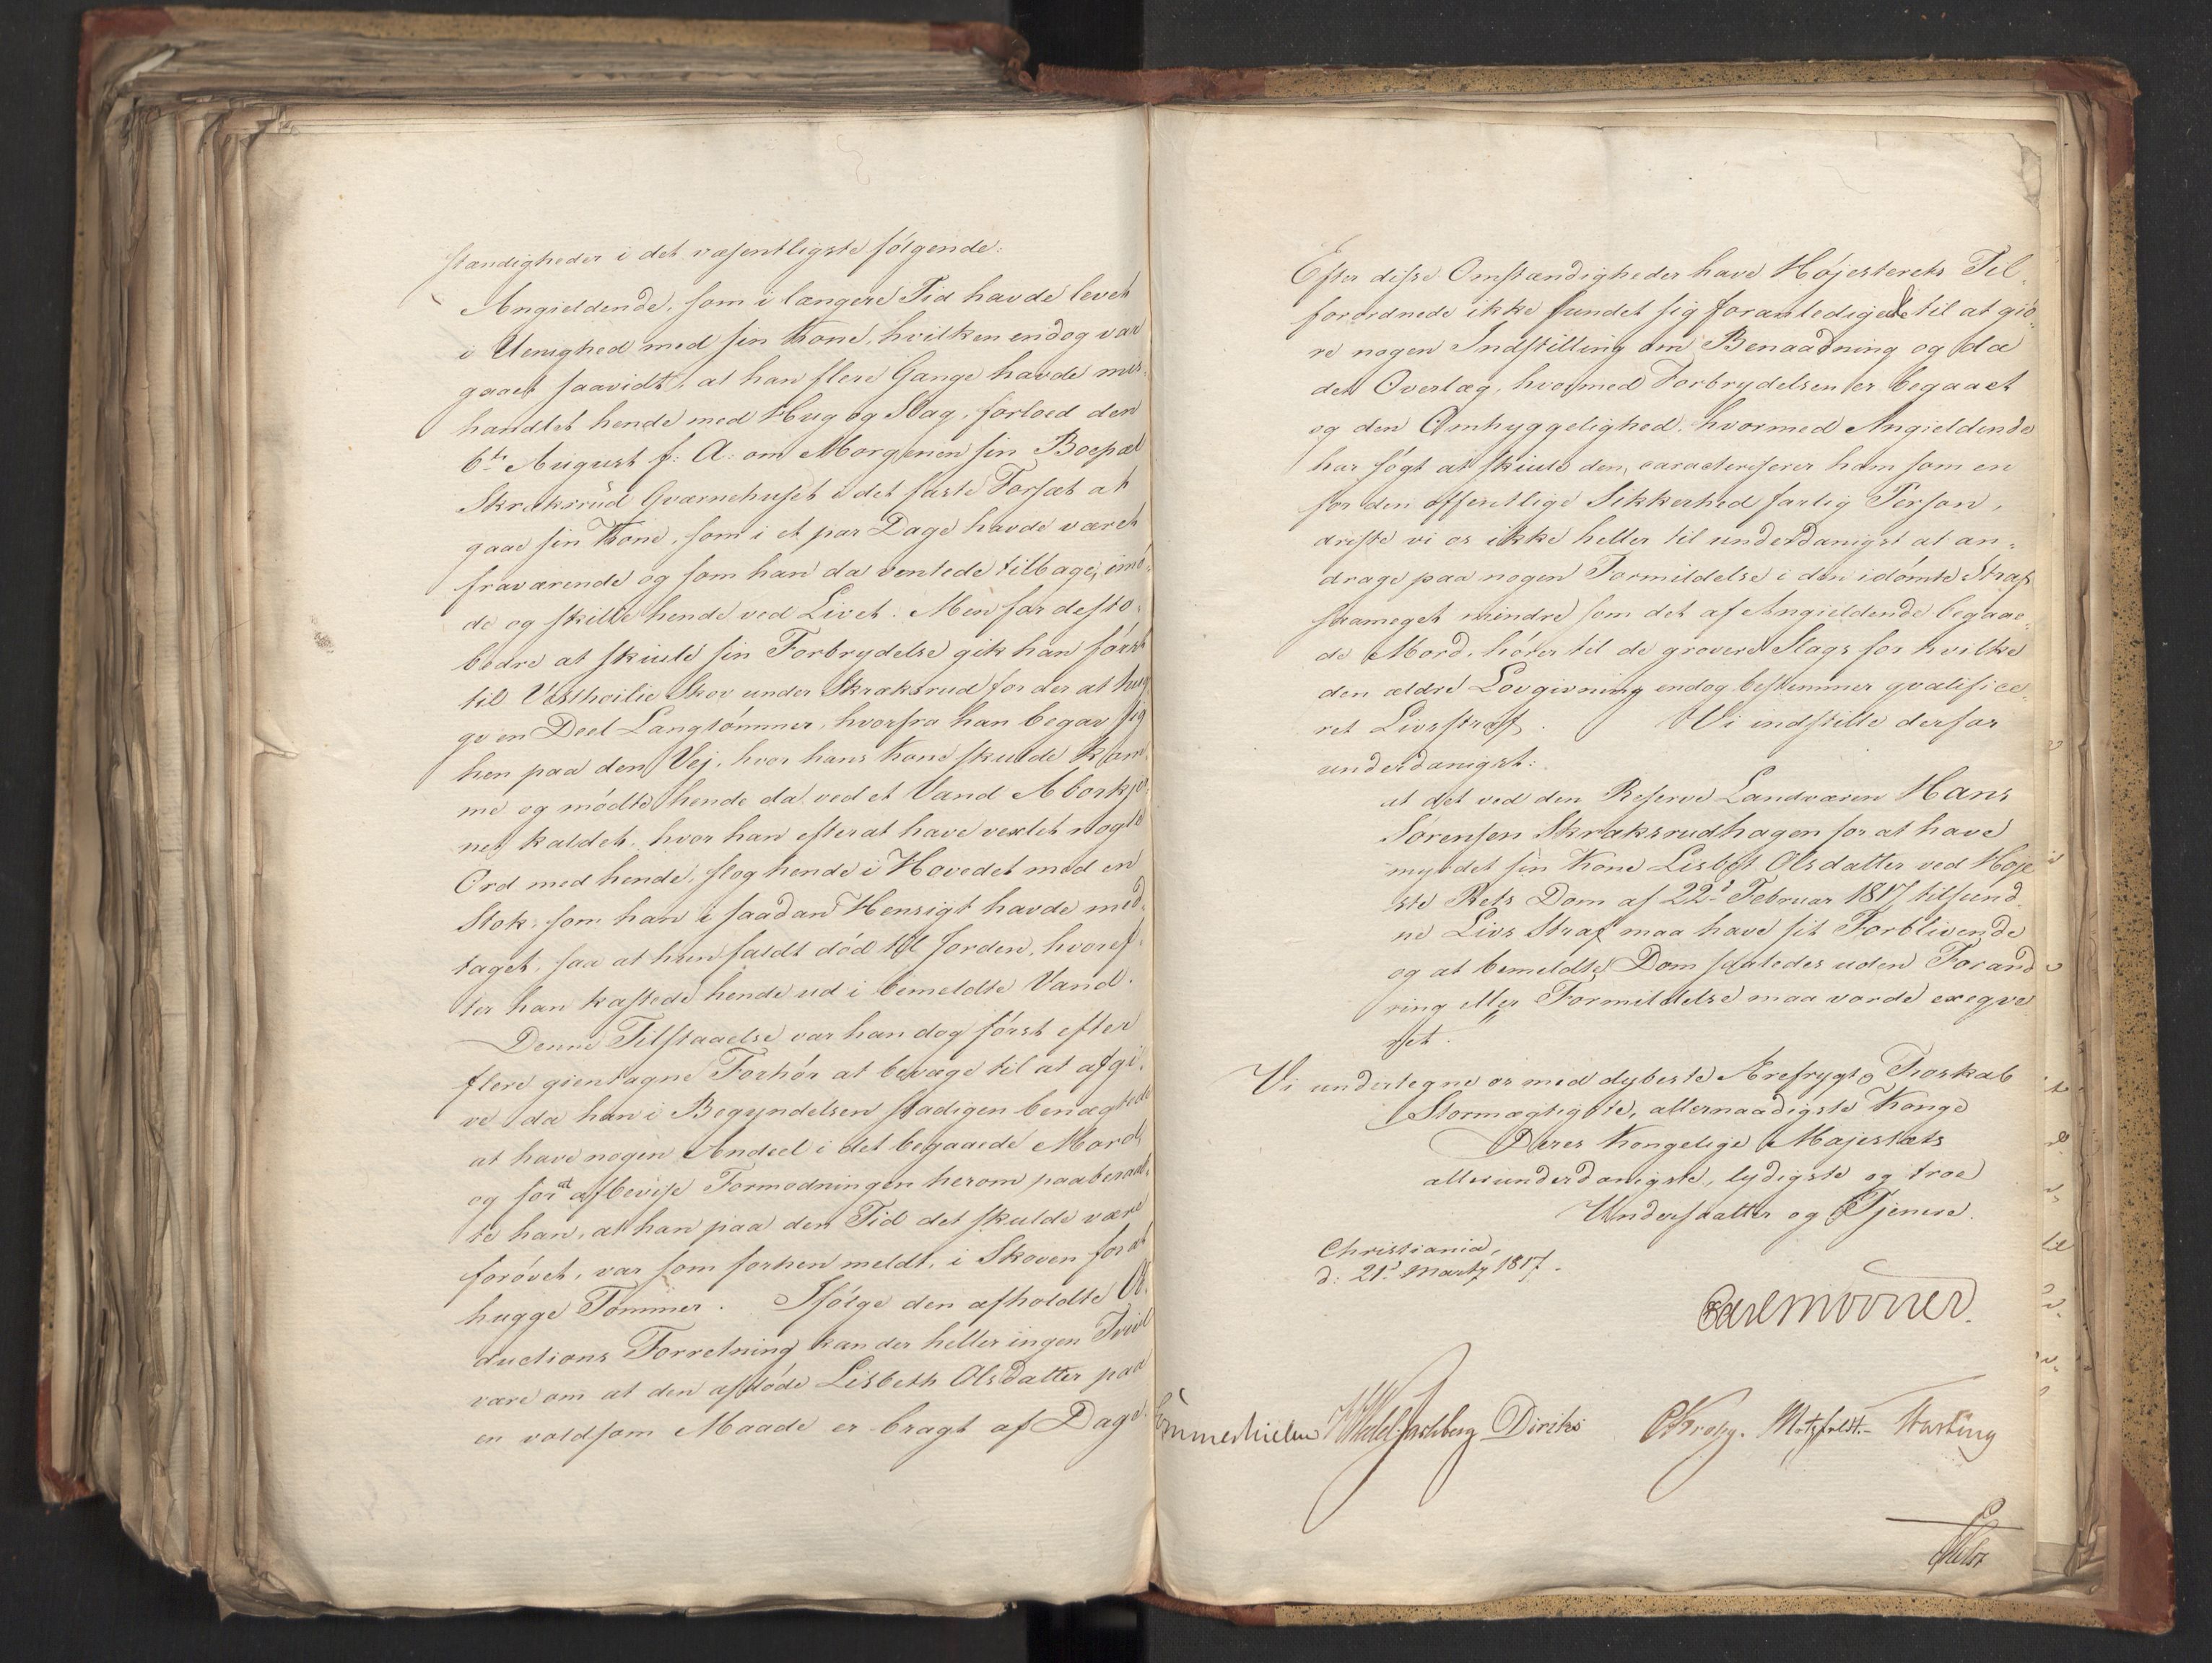 standigheder i det væsentligste følgende:
Angieldende, som i længere Tid havde levet
i Uenighed med sin Kone, hvilken endog var
gaaet saavidt, at han flere Gange havde mis-
handlet hende med Hug og Slag, forlod den
6te August f: A: om Morgenen sin Boepæl
Skraksrud Qværnehuset i det faste Forsæt at
gaae sin Kone, som i et par Dage havde været
fraværende og som han da ventede tilbage, imø-
de og skille hende ved Livet. Men for desto-
bedre at skiule sin Forbrydelse gik han først
til Vestheilie Skov under Skraksrud for der at hug-
ge en Deel Langtømmer, hvorfra han begav sig
hen paa den Vej, hvor hans Kone skulde kom-
me og mødte hende da ved et Vand Aborkjø-
net kaldet, hvor han efterat have vexlet nogle
Ord med hende, slog hende i Hovedet med en
Stok, som han i saadan Hensigt havde med-
taget, saa at hun faldt død til Jorden, hvoref-
ter han kastede hende ud i bemeldte Vand.
Denne Tilstaaelse var han dog først efter
flere gientagne Forhør at bevæge til at afgi-
ve da han i Begyndelsen stadigen benægtede
at have nogen Andeel i det begaaede Mord,
og for at afbevise Formodningen herom paaberaab-
te han, at han paa den Tid det skulde være
forøvet, var som forhen meldt, i Skoven for at
hugge Tømmer. Ifølge den afholdte Ob-
ductions Forretning kan der heller ingen Tvivl
være om at den afdøde Lisbeth Olsdatter paa
en voldsom Maade er bragt af Dage.
Efter disse Omstændigheder have Højesterets Til-
forordnede ikke fundet sig foranlediget til at giø-
re nogen Indstilling om Benaadning og da
det Overlæg, hvormed Forbrydelsen er begaaet
og den Omhyggelighed, hvormed Angieldende
har søgt at skiule den, caracteriserer ham som en
for den offentlige Sikkerhed farlig Person,
driste vi os ikke heller til underdanigst at an-
drage paa nogen Formildelse i den idømte Straf
saameget mindre som det af Angieldende begaae-
de Mord, hører til de grovere Slags for hvilke
den ældre Lovgivning endog bestemmer qvalifice-
ret Livsstraf. Vi indstille derfor
underdanigst:
at det ved den Reserve Landværn Hans
Sørensen Skraksrudhagen for at have
myrdet sin Kone Lisbet Olsdatter ved Høje-
ste Rets Dom af 22d Februar 1817 tilfund-
ne Livs Straf maa have sit Forblivende
og at bemeldte Dom saaledes uden Forand-
ring eller Formildelse maa vorde exeqve-
ret.
Vi undertegne os med dybeste Ærefrygt og Troskab
Stormægtigste, allernaadigste Konge
Deres Kongelige Majestæts
allerunderdanigste, lydigste og troe
Undersaatter og Tjenere.
Christiania,
d: 21d Martz 1817.
Carl Mörner.
Sommerhielm HWedel Jarlsberg Diriks CKrohg. Motzfeldt. Hasting